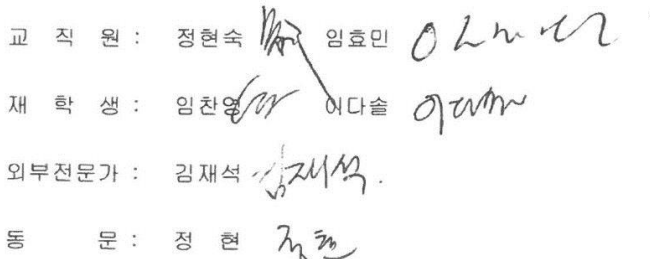 교 직 원 : 정현숙 임효민
재 학 생 : 임찬영 이다솔 이다솔
외부전문가 : 김재석 김재석.
동 문 : 정 현 정현